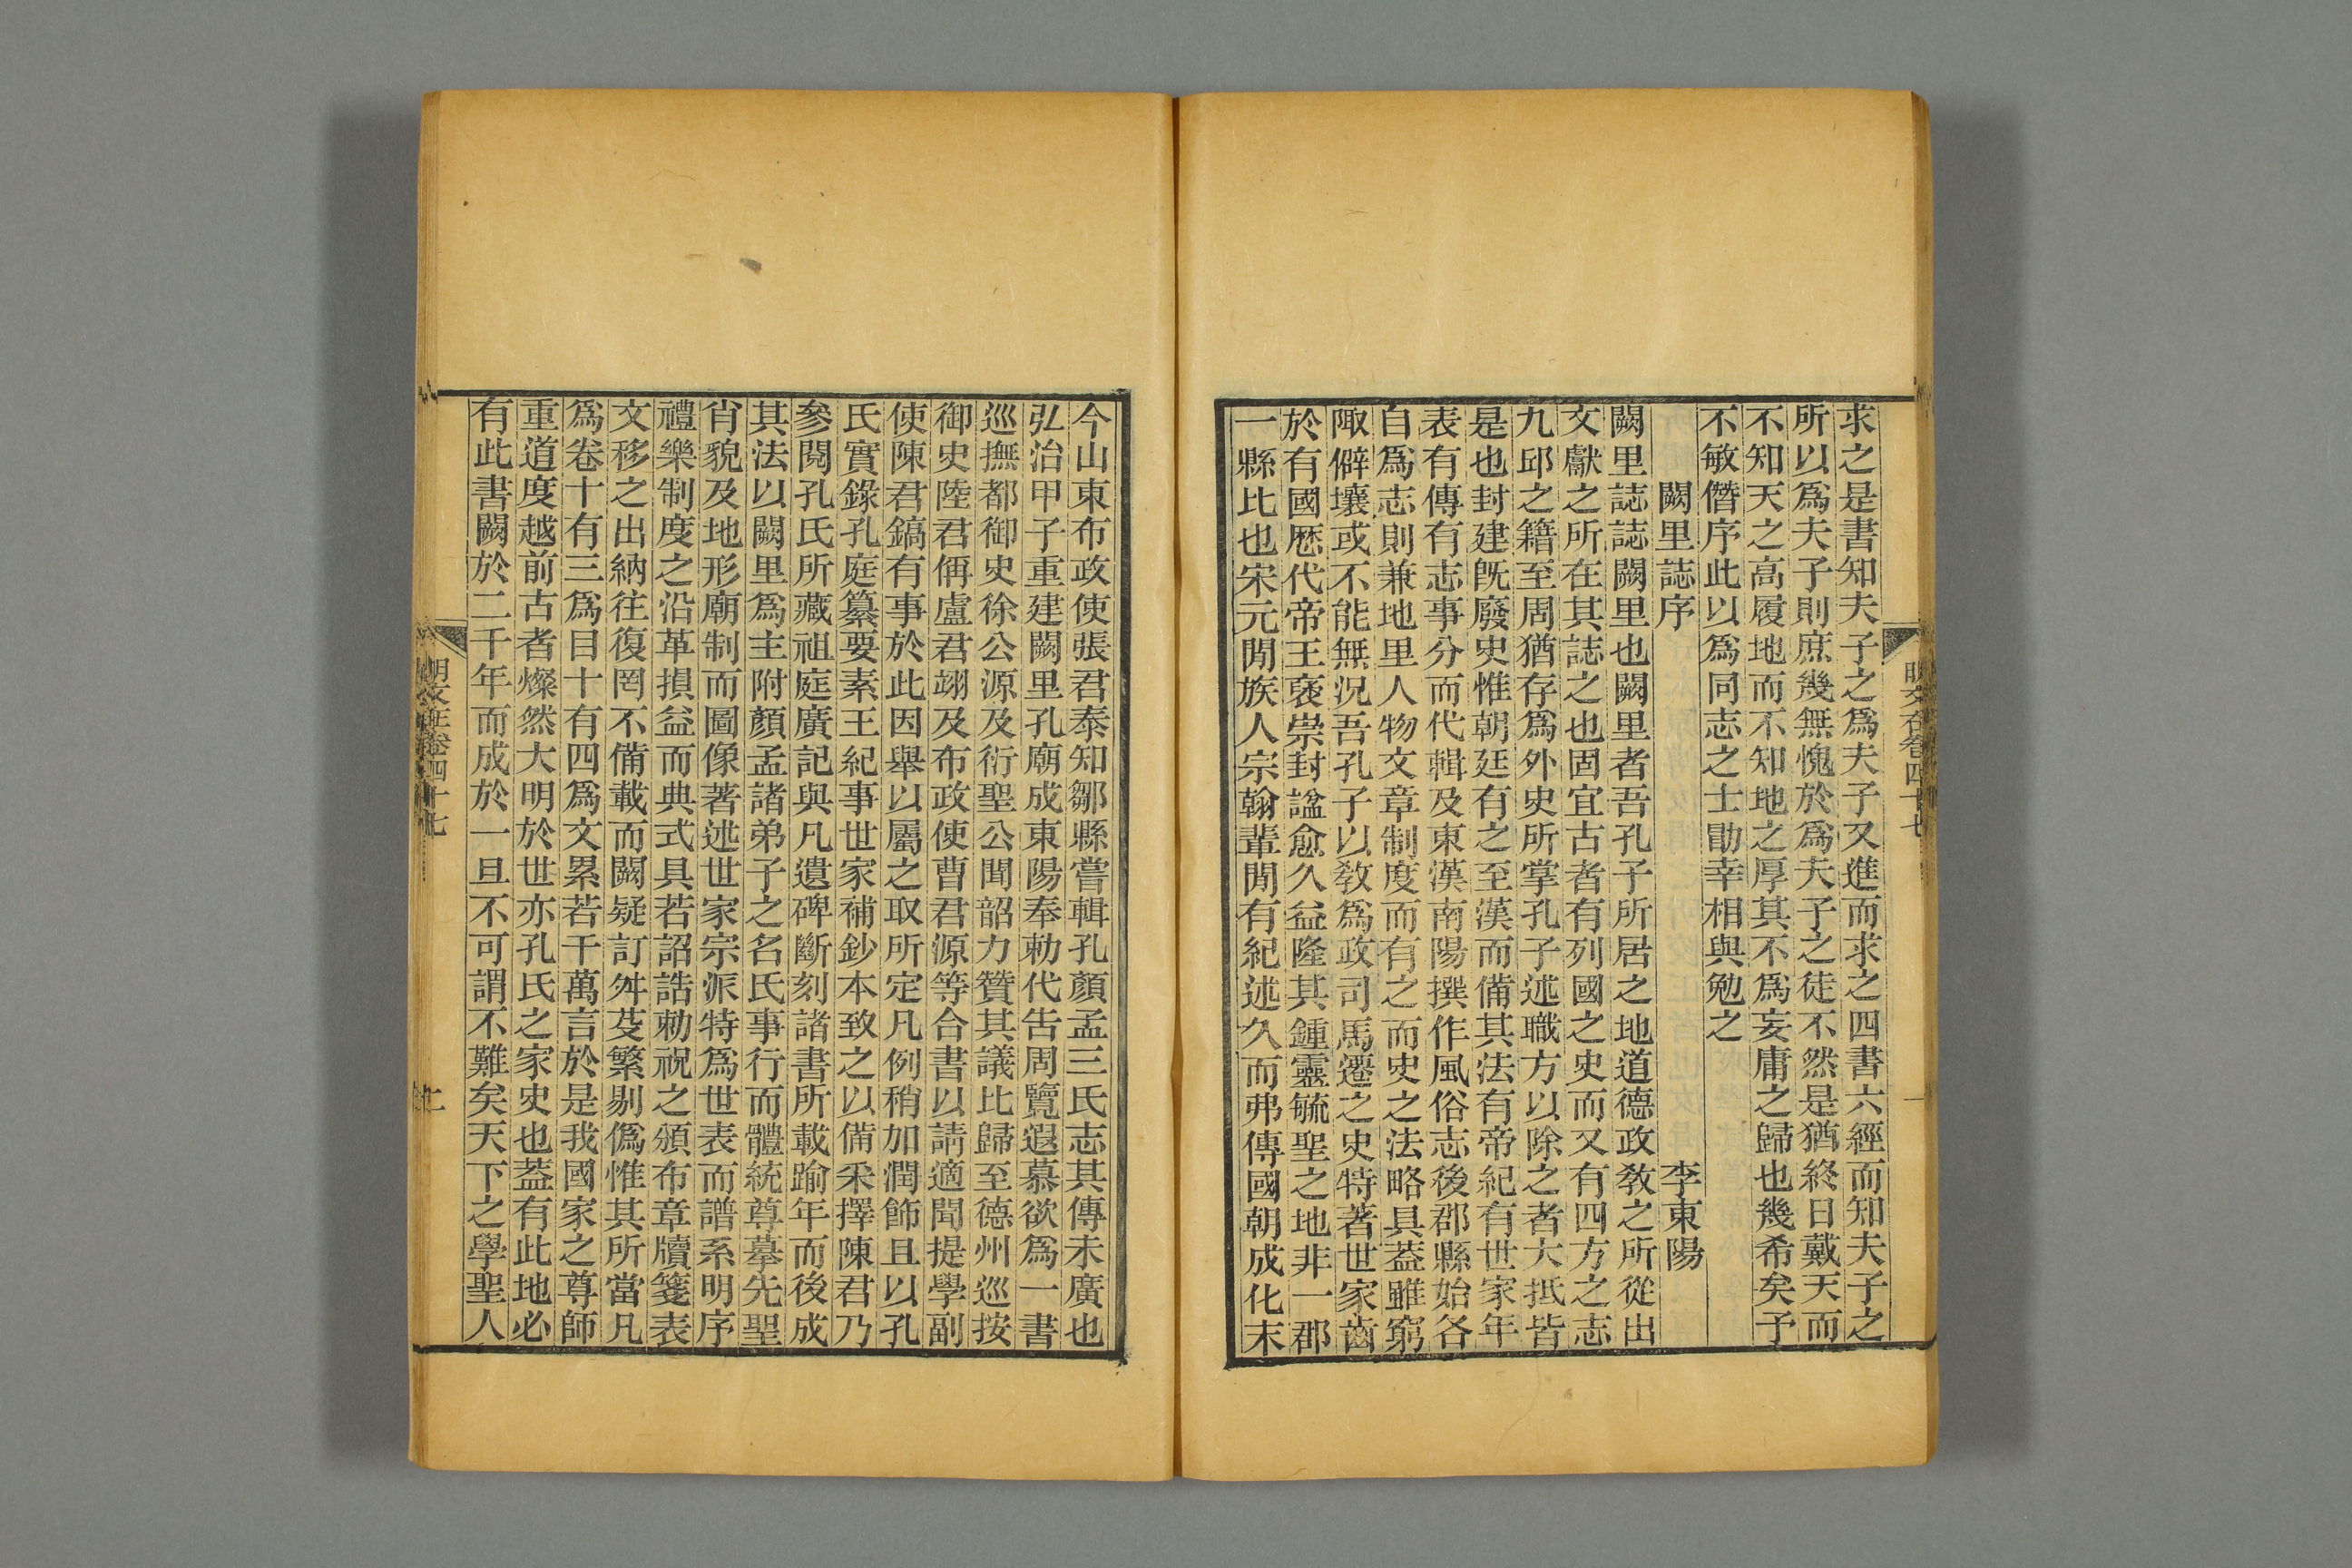 求之是書知夫子之爲夫子又進而求之四書六經而知夫子之
所以爲夫子則庶幾無愧於爲夫子之徒不然是猶終日戴天而
不知天之高履地而不知地之厚其不爲妄庸之歸也幾希矣予
不敏僭序此以爲同志之士勖幸相與勉之
闕里誌序 李東陽
闕里誌誌闕里也闕里者吾孔子所居之地道德政敎之所從出
文獻之所在其誌之也固宜古者有列國之史而又有四方之志
九邱之籍至周猶存爲外史所掌孔子述職方以除之者大抵皆
是也封建旣廢史惟朝廷有之至漢而備其法有帝紀有世家年
表有傳有志事分而代輯及東漢南陽撰作風俗志後郡縣始各
自爲志則兼地里人物文章制度而有之而史之法略具葢雖窮
陬僻壤或不能無況吾孔子以敎爲政司馬遷之史特著世家齒
於有國歷代帝王褒崇封諡愈久益隆其鍾靈毓聖之地非一郡
一縣比也宋元閒族人宗翰輩閒有紀述久而弗傳國朝成化末
今山東布政使張君泰知鄒縣嘗輯孔顏孟三氏志其傳未廣也
弘治甲子重建闕里孔廟成東陽奉勅代吿周覽遐慕欲爲一書
巡撫都御史徐公源及衍聖公聞韶力贊其議比歸至德州巡按
御史陸君偁盧君翊及布政使曹君源等合書以請適聞提學副
使陳君鎬有事於此因舉以屬之取所定凡例稍加潤飾且以孔
氏實錄孔庭纂要素王紀事世家補鈔本致之以備采擇陳君乃
參閱孔氏所藏祖庭廣記與凡遺碑斷刻諸書所載踰年而後成
其法以闕里爲主附顏孟諸弟子之名氏事行而體統尊摹先聖
肖貌及地形廟制而圖像著述世家宗派特爲世表而譜系明序
禮樂制度之沿革損益而典式具若詔誥勅祝之頒布章牘箋表
文移之出納往復罔不備載而闕疑訂舛芟繁剔僞惟其所當凡
爲卷十有三爲目十有四爲文累若干萬言於是我國家之尊師
重道度越前古者燦然大明於世亦孔氏之家史也葢有此地必
有此書闕於二千年而成於一旦不可謂不難矣天下之學聖人